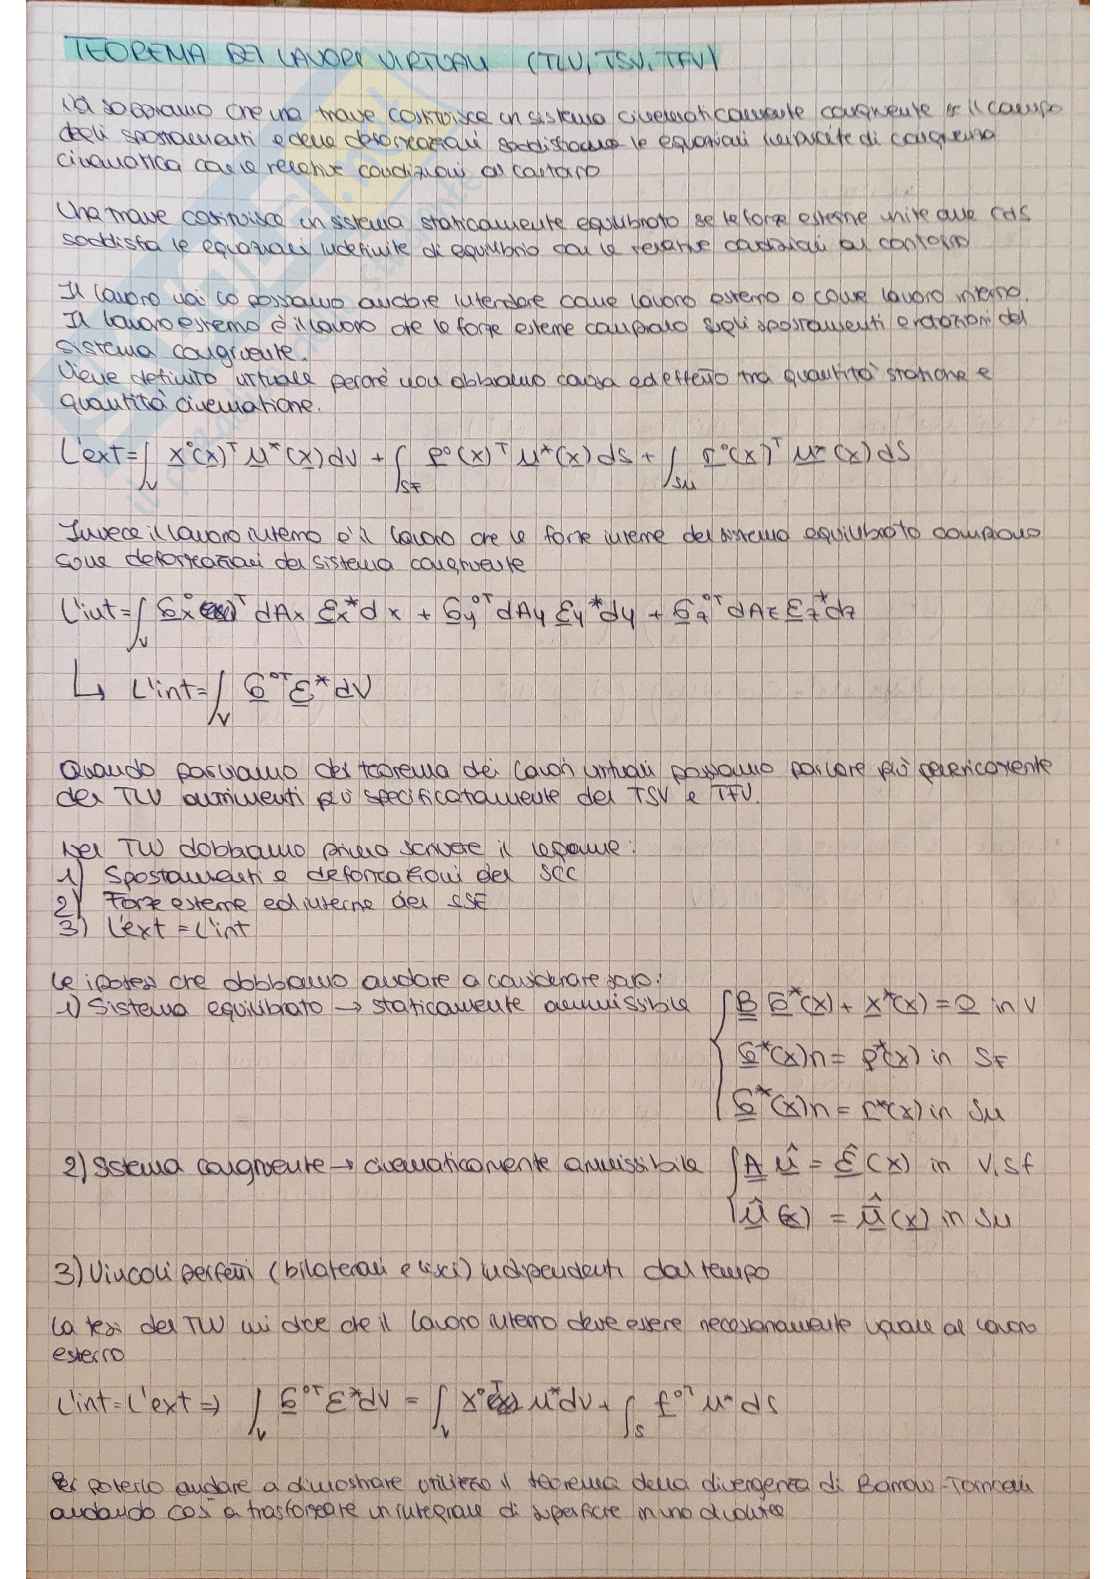 TEOREMA DEI LAVORI VIRTUALI (TLV, TSV, TFV)
Noi sappiamo che una trave costituisce un sistema cinematicamente congruente se il campo
degli spostamenti e delle deformazioni soddisfano le equazioni indefinite di congruenza
cinematica con le relative condizioni al contorno
Una trave costituisce un sistema staticamente equilibrato se le forze esterne unite alle cds
soddisfa le equazioni indefinite di equilibrio con le relative condizioni al contorno
Il lavoro noi lo possiamo andare intendere come lavoro esterno o come lavoro interno.
Il lavoro esterno è il lavoro che le forze esterne compiono sugli spostamenti e rotazioni del
sistema congruente.
Viene definito virtuale perché non abbiamo causa ed effetto tra quantità statiche e
quantità cinematiche.
L'ext = ∫_V X°(x)ᵀ u*(x) dV + ∫_SF f°(x)ᵀ u*(x) dS + ∫_Su r°(x)ᵀ u*(x) dS
Invece il lavoro interno è il lavoro che le forze interne del sistema equilibrato compiono
sulle deformazioni del sistema congruente
L'int = ∫_V σx°ᵀ dAx εx* dx + σy°ᵀ dAy εy* dy + σz°ᵀ dAz εz* dz
↳ L'int = ∫_V σ°ᵀ ε* dV
Quando parliamo del teorema dei lavori virtuali possiamo parlare più genericamente
del TLV altrimenti più specificatamente del TSV e TFV.
Nel TLV dobbiamo prima scrivere il legame:
1) Spostamenti e deformazioni del SCC
2) Forze esterne ed interne del SSE
3) L'ext = L'int
Le ipotesi che dobbiamo andare a considerare sono:
1) Sistema equilibrato → staticamente ammissibile { B σ*(x) + X*(x) = 0 in V
σ*(x) n = f*(x) in SF
σ*(x) n = r*(x) in Su
2) Sistema congruente → cinematicamente ammissibile { A û = ε̂(x) in V, Sf
û(x) = û(x) in Su
3) Vincoli perfetti (bilaterali e lisci) indipendenti dal tempo
La tesi del TLV mi dice che il lavoro interno deve essere necessariamente uguale al lavoro
esterno
L'int = L'ext ⇒ ∫_V σ°ᵀ ε* dV = ∫_V X°ᵀ u* dV + ∫_S f°ᵀ u* dS
Per poterlo andare a dimostrare utilizzo il teorema della divergenza di Barrow-Torricelli
andando così a trasformare un integrale di superficie in uno di volume